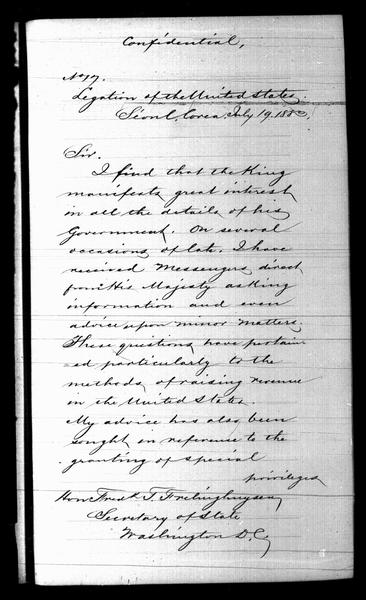 Confidential,
No 17.
Legation of the United States.
Séoul, Corea, July 19. 1883,
Sir.
I find that the King
manifests great interest
in all the details of his
Government. On several
occasions of late, I have
received Messengers direct
from His Majesty asking
information and even
advice upon minor matters.
These questions have pertain
ed particularly to the
methods of raising revenue
in the United States.
My advice has also been
sought in reference to the
granting of special
privileges
Hon. Fredk. T. Frelinghuysen,
Secretary of State
Washington D.C,